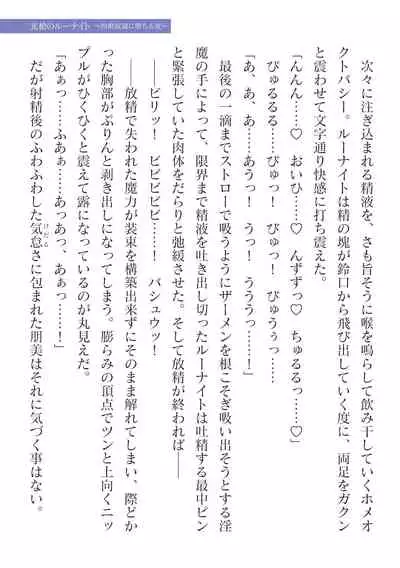 光槍のルーナイト
次々に注ぎ込まれる精液を、さも旨そうに喉を鳴らして飲み干していくホメオ
クトパシー。ルーナイトは精の塊が鈴口から飛び出していく度に、両足をガクン
と震わせて文字通り快感に打ち震えた。
「んんん……♡ おいひ……♡ んずずっ♡ ちゅるるっ……♡」
ぴゅるるる……ぴゅっ！ ぴゅっ！ ぴゅうぅっ……
「あ、あ、あ……あうっ！ うっ！ うううっ……！」
最後の一滴までストローで吸うようにザーメンを根こそぎ吸い出そうとする淫
魔の手によって、限界まで精液を吐き出し切ったルーナイトは吐精する最中ピン
と緊張していた肉体をだらりと弛緩させた。そして放精が終われば――
――ビリッ！ ビビビビ……！ バシュウッ！
――放精で失われた魔力が装束を構築出来ずにそのまま解れてしまい、際どか
った胸部がぷりんと剥き出しになってしまう。膨らみの頂点でツンと上向くニッ
プルがひくひくと震えて露になっているのが丸見えだ。
「あぁっ……ふあぁ……あっあっ、あぁっ……！」
だが射精後のふわふわした気怠さに包まれた朋美はそれに気づく事はない。
けだる